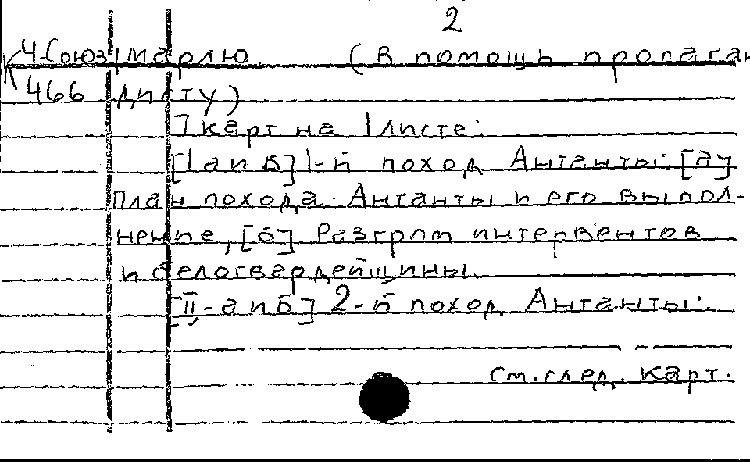 2
Ч-Союз марлю (В помощь пропаган
466 дисту)
7 карт на 1 листе:
[I а и б] 1-й поход Антанты: [а]
План похода Антанты и его выпол-
нение, [б] Разгром интервентов
и белогвардейщины.
[II-а и б] 2-й поход Антанты:
См. след. карт.